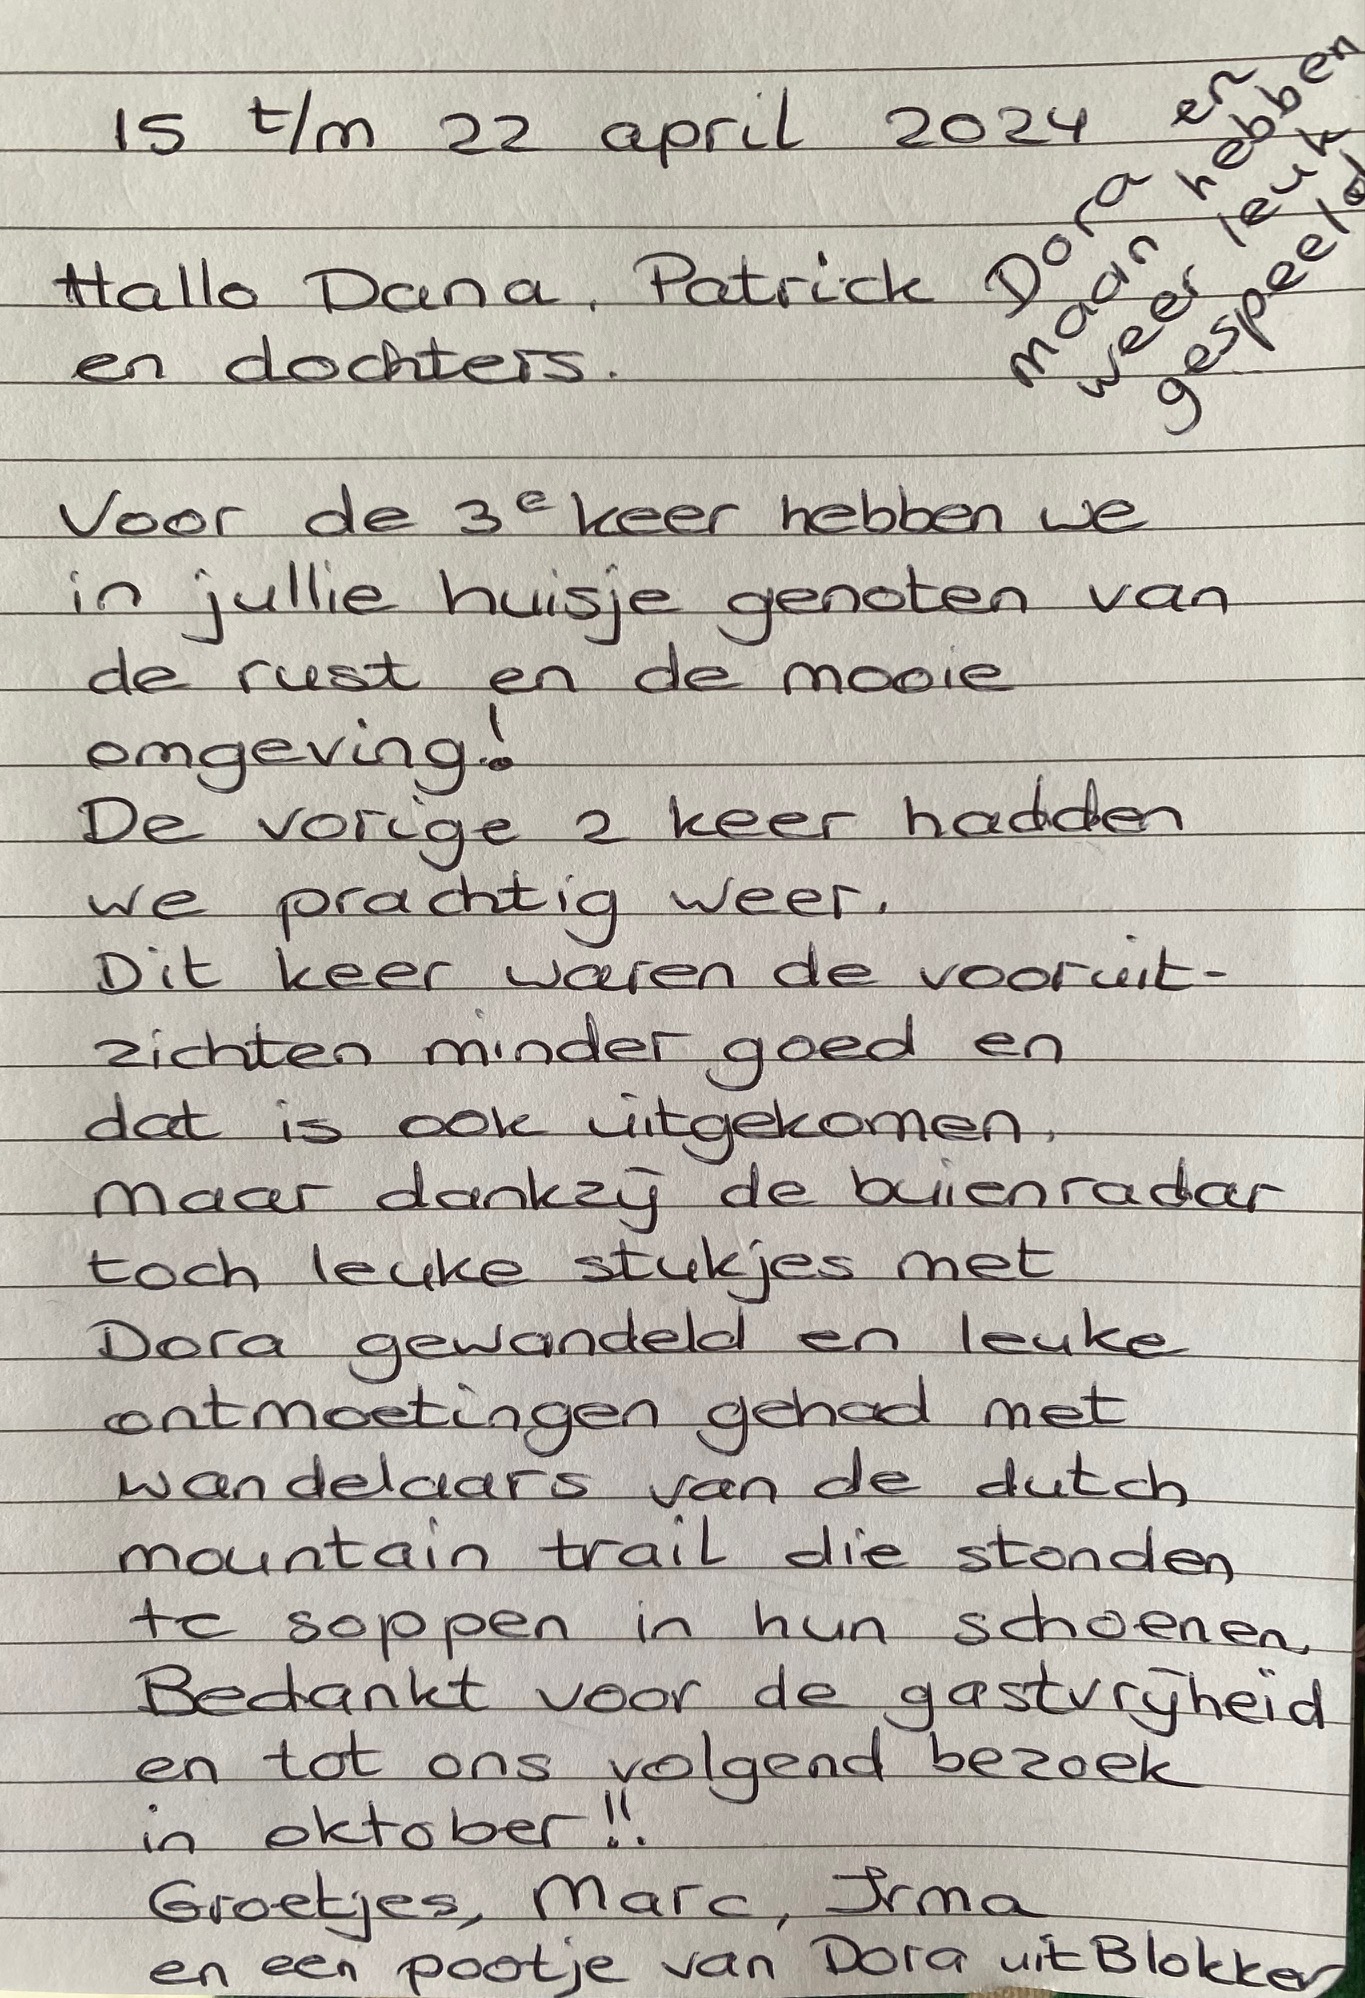 15 t/m 22 april 2024
Dora en
maan hebben
weer leuk
gespeeld
Hallo Dana, Patrick
en dochters.
Voor de 3e keer hebben we
in jullie huisje genoten van
de rust en de mooie
omgeving!
De vorige 2 keer hadden
we prachtig weer.
Dit keer waren de vooruit-
zichten minder goed en
dat is ook uitgekomen,
maar dankzij de buienradar
toch leuke stukjes met
Dora gewandeld en leuke
ontmoetingen gehad met
wandelaars van de dutch
mountain trail die stonden
te soppen in hun schoenen,
Bedankt voor de gastvrijheid
en tot ons volgend bezoek
in oktober!!
Groetjes, Marc, Irma
en een pootje van Dora uit Blokker